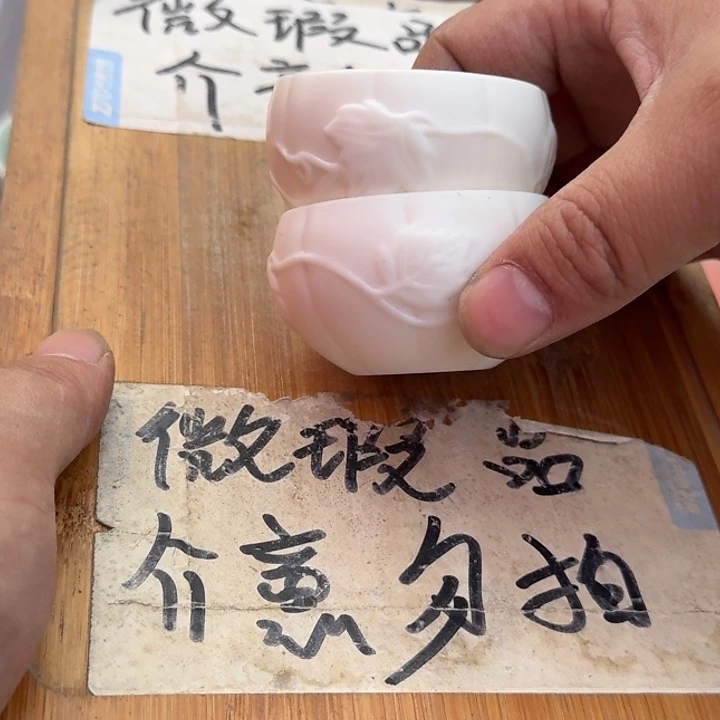 微瑕品
介意
微瑕品
介意勿拍